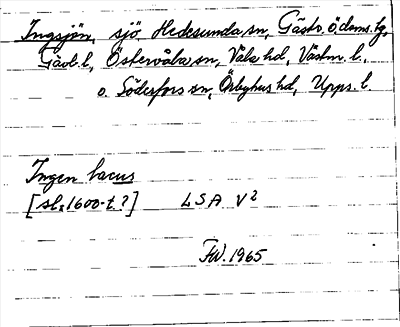 Ingsjön, sjö, Hedesunda sn, Gästr. ö. doms. tg,
Gävl. l, Östervåla sn, Våla hd, Västm. l.,
o. Söderfors sn, Örbyhus hd, Upps. l.
Ingen lacus
[sl. 1600-t.?] LSA V2
FW. 1965